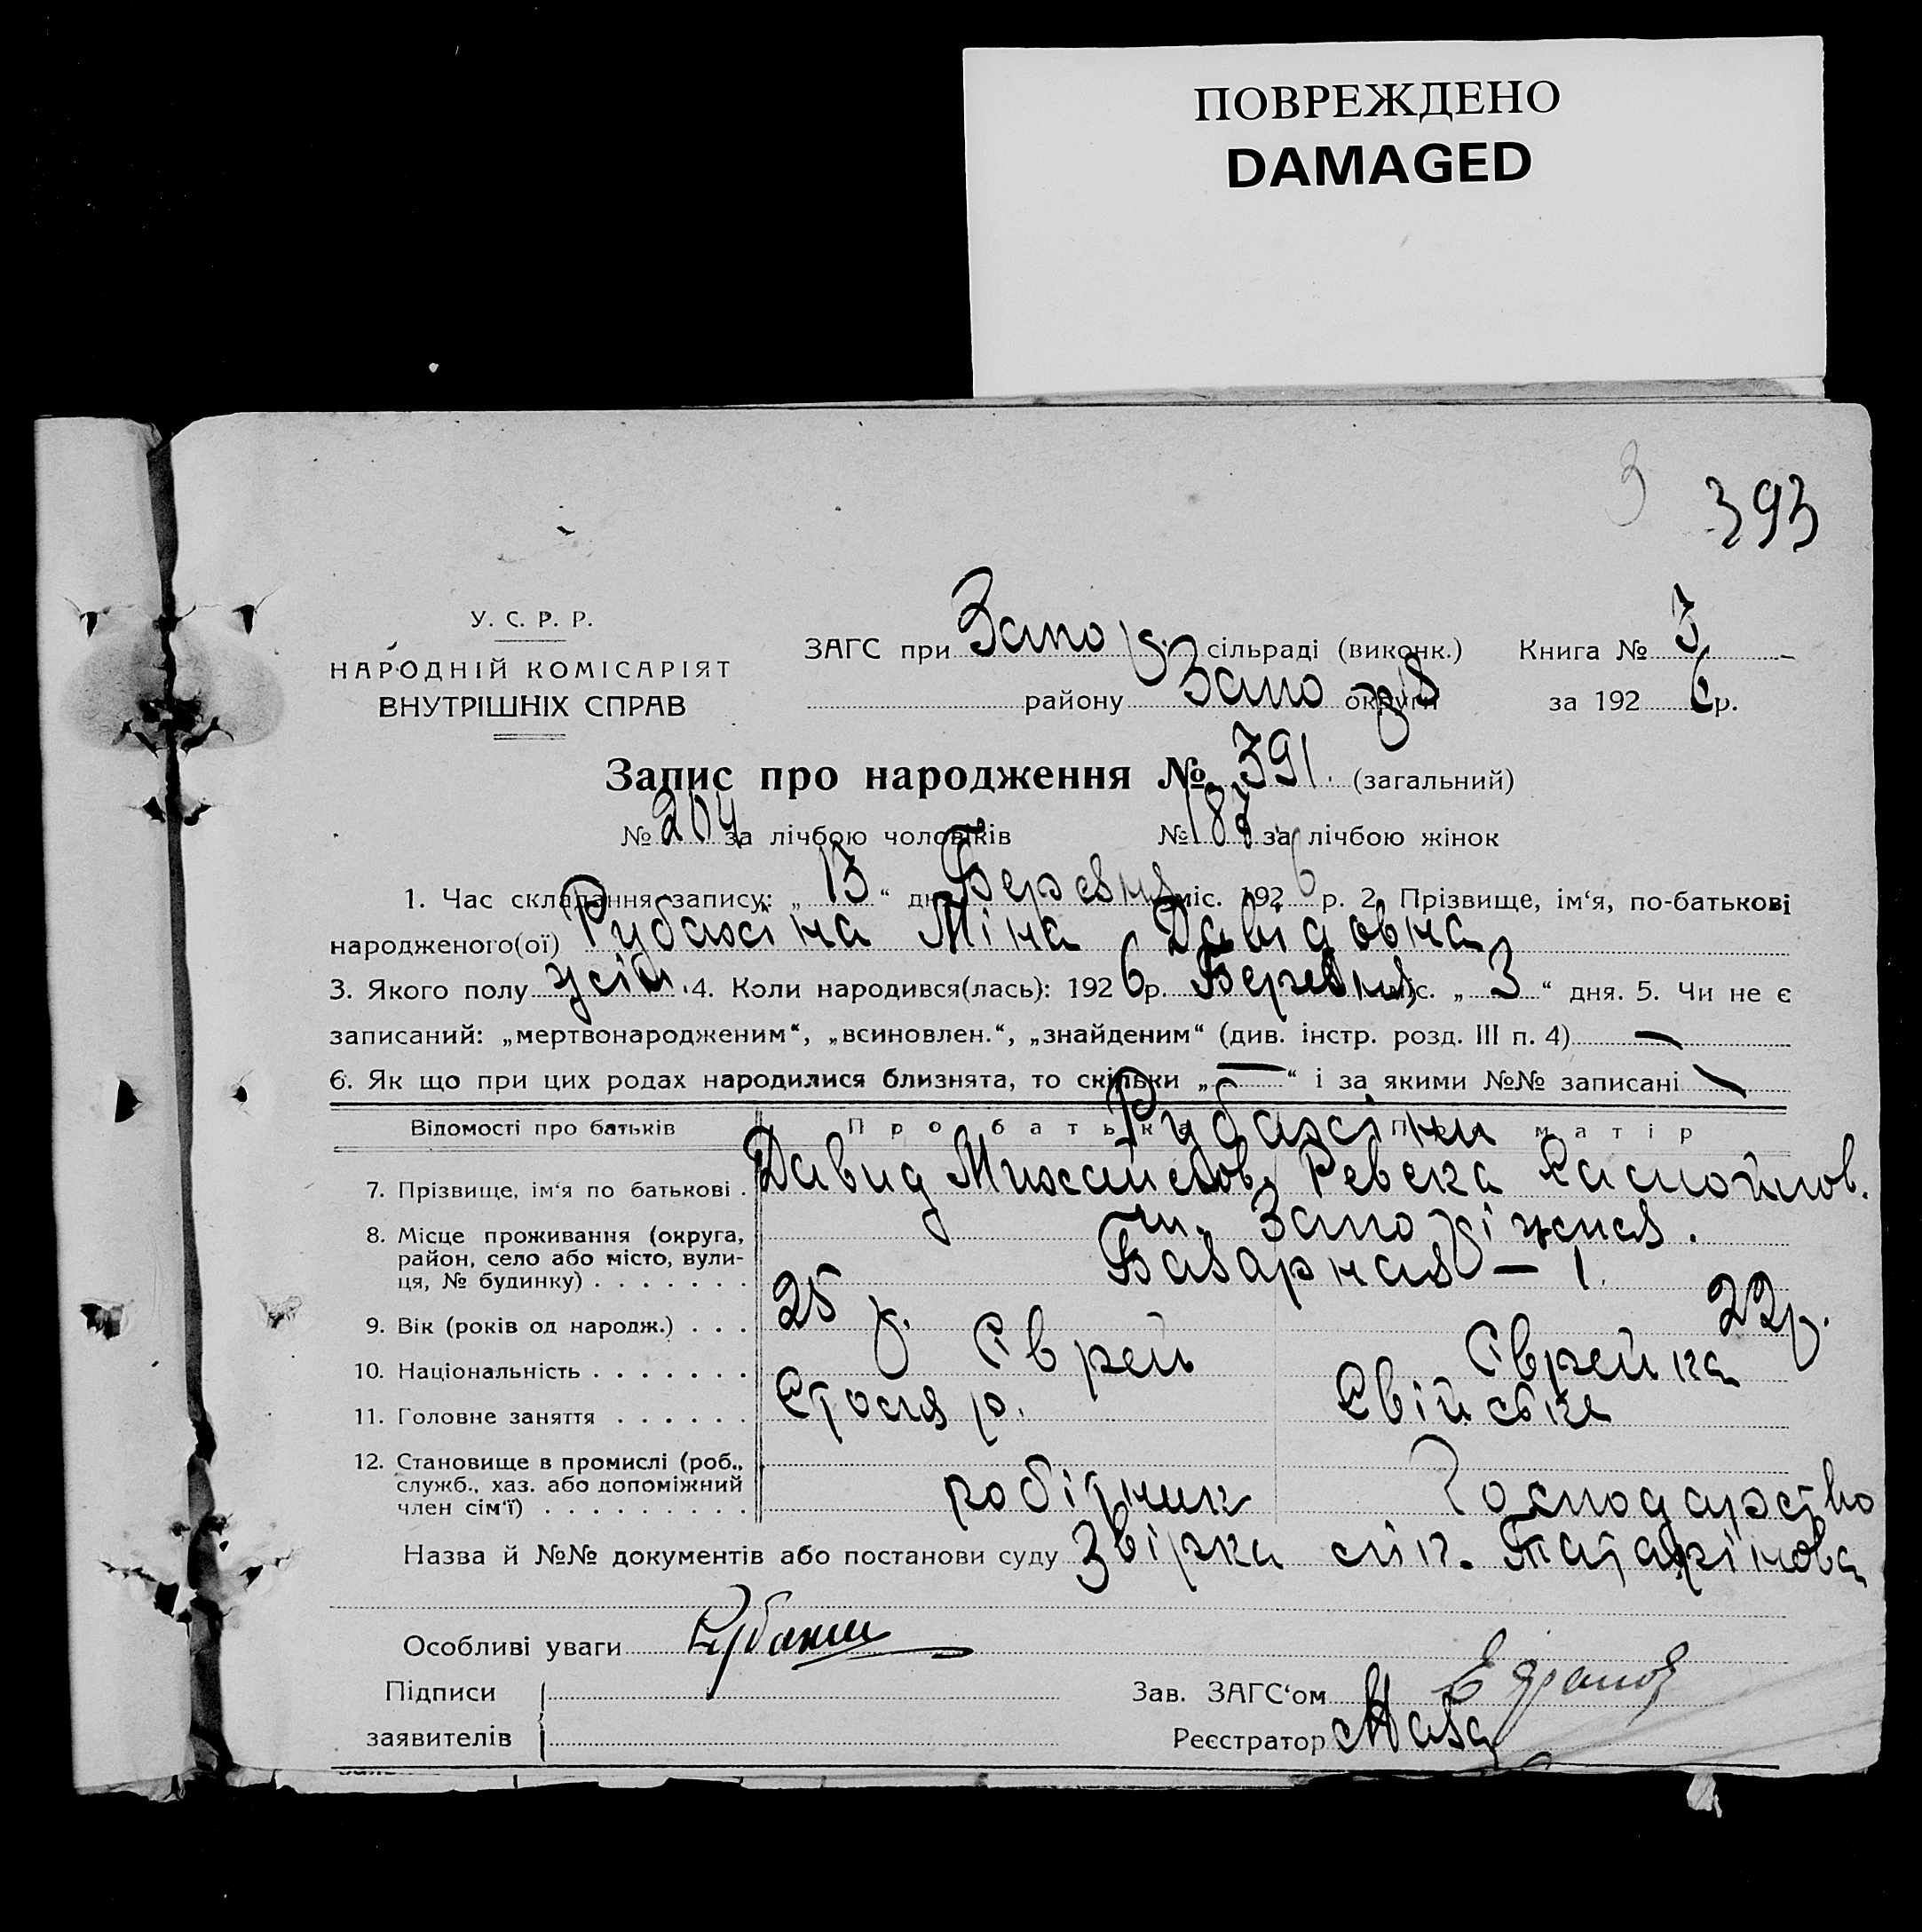 ПОВРЕЖДЕНО
DAMAGED
3
393
У. С. Р. Р.
НАРОДНІЙ КОМІСАРІЯТ
ВНУТРІШНІХ СПРАВ
ЗАГС при Запор. сільраді (виконк.) Книга № 3
району Запоріз округи за 1926 р.
Запис про народження № 391. (загальний)
№ 204 за лічбою чоловіків № 187 за лічбою жінок
1. Час складання запису: „13“ дн. Березня міс. 1926 р. 2. Прізвище, ім‘я, по-батькові
народженого(ої) Рубажіна Міна Давідовна
3. Якого полу жін. 4. Коли народився(лась): 1926 р. Березня міс. „3“ дня. 5. Чи не є
записаний: „мертвонародженим“, „всиновлен.“, „знайденим“ (див. інстр. розд. III п. 4) —
6. Як що при цих родах народилися близнята, то скільки „—“ і за якими №№ записані —
Відомості про батьків Про батька Про матір
Рубажіни
7. Прізвище, ім‘я по батькові . Давид Михайлов. Ревека Самойлов.
8. Місце проживання (округа, район, село або місто, вули-ця, № будинку) . . . . . . . м. Запоріжжя.
Базарная – 1.
9. Вік (років од народж.) . . . 25 р. 22 р.
10. Національність . . . . . . . Єврей Єврейка
11. Головне заняття . . . . . . Столяр. Свійське
12. Становище в промислі (роб., служб., хаз. або допоміжний член сім‘ї) . . . . . . . . . робітник Господарство
Назва й №№ документів або постанови суду Звірка лік. Татарінова
Особливі уваги
Підписи
заявителів
Зав. ЗАГС‘ом
Реєстратор